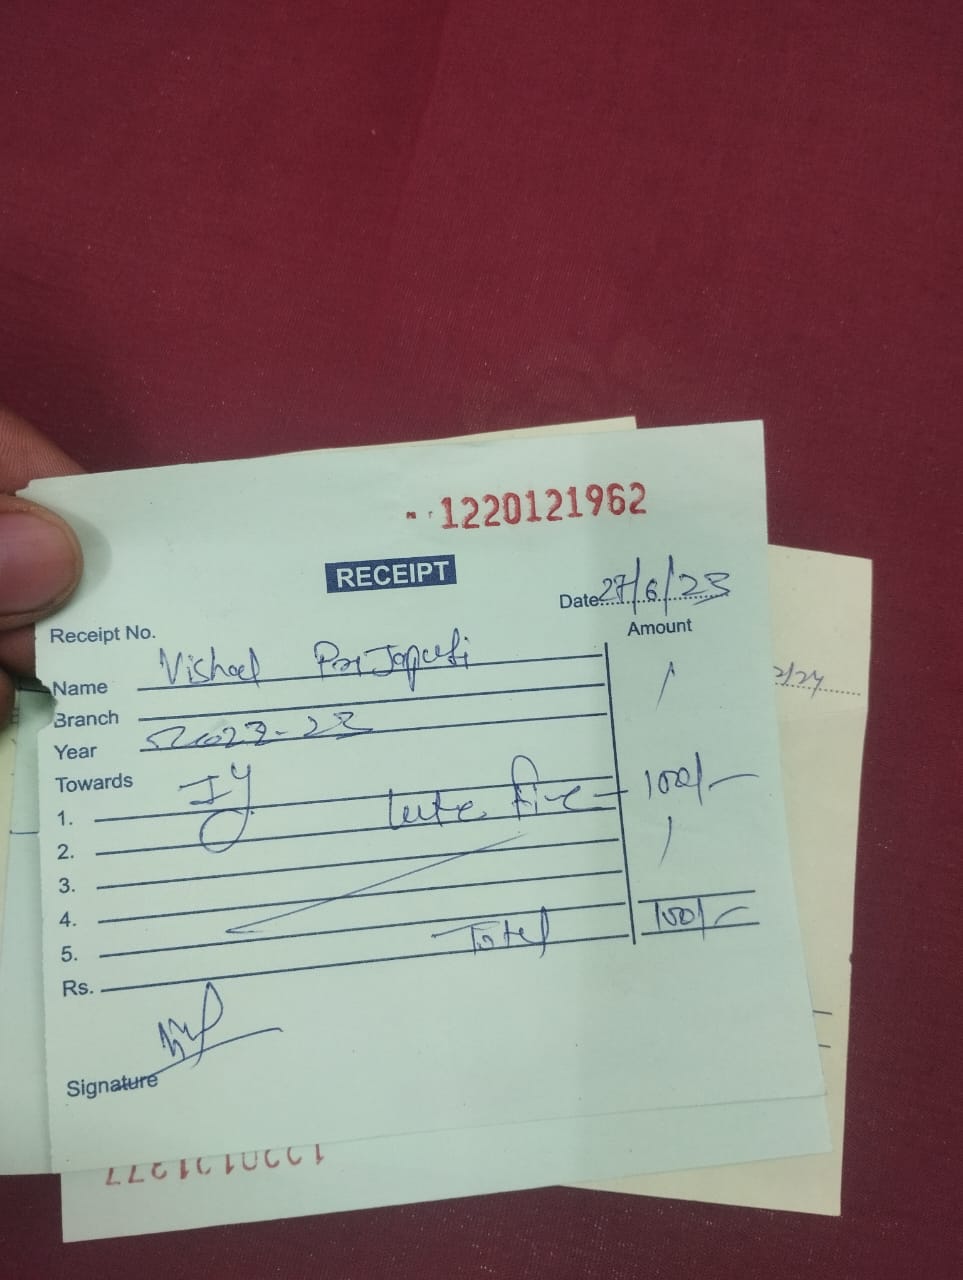 1220121962
RECEIPT
Date 27/6/23
Receipt No.
Amount
Name Vishal Prajapati
Branch
Year 2022-23
Towards
1. late fine 100/-
2.
3.
4.
5. Total 100/-
Rs.
Signature
2/24